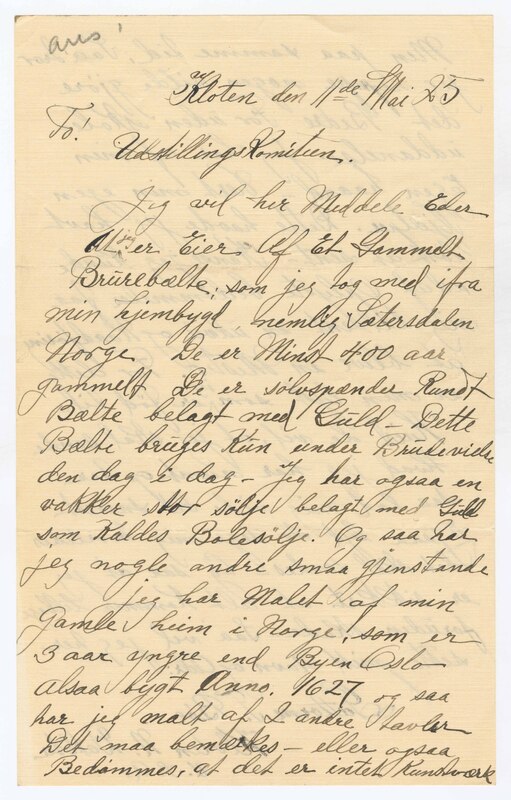 ans'
Kloten den 11de Mai 25
To!
Udstillings Komitien.
Jeg vil her Meddele Eder
At jeg er Eier Af Et Gammelt
Brurebælte, som jeg tog med ifra
min hjembygd nemlig Sætersdalen
Norge De er Minst 400 aar
gammelt De er sølvspænder Rundt
Bælte belagt med Guld – Dette
Bælte bruges Kun under Brudevielse
den dag i dag – Jeg har ogsaa en
vakker stor sølje belagt med Guld
som Kaldes Bolesølje. Og saa har
jeg nogle andre smaa gjenstande
jeg har Malet af min
Gamle heim i Norge, som er
3 aar yngre end Byen Oslo
alsaa bygt Anno. 1627 og saa
har jeg malt af 2 andre tavler
Det maa bemerkes – eller ogsaa
Bedømmes, at det er intet Kunstværk